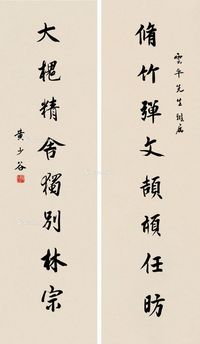 雲平先生雅屬
脩竹彈文頡頏任昉
大㮄精舍獨別林宗
黃少谷